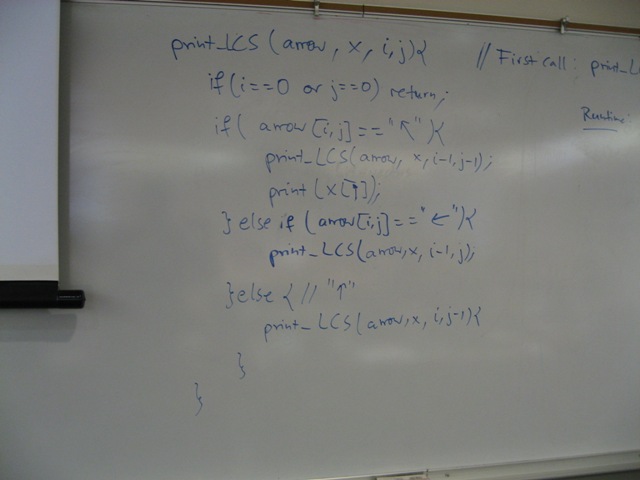 print_LCS (arrow, x, i, j){
// First call: print_L
if (i==0 or j==0) return;
Runtime:
if( arrow [i,j] == "↖"){
print_LCS(arrow, x, i-1, j-1);
print (x[i]);
} else if (arrow[i,j]=="←"){
print_LCS(arrow,x,i-1,j);
}else { // "↑"
print_LCS(arrow,x, i,j-1){
}
}